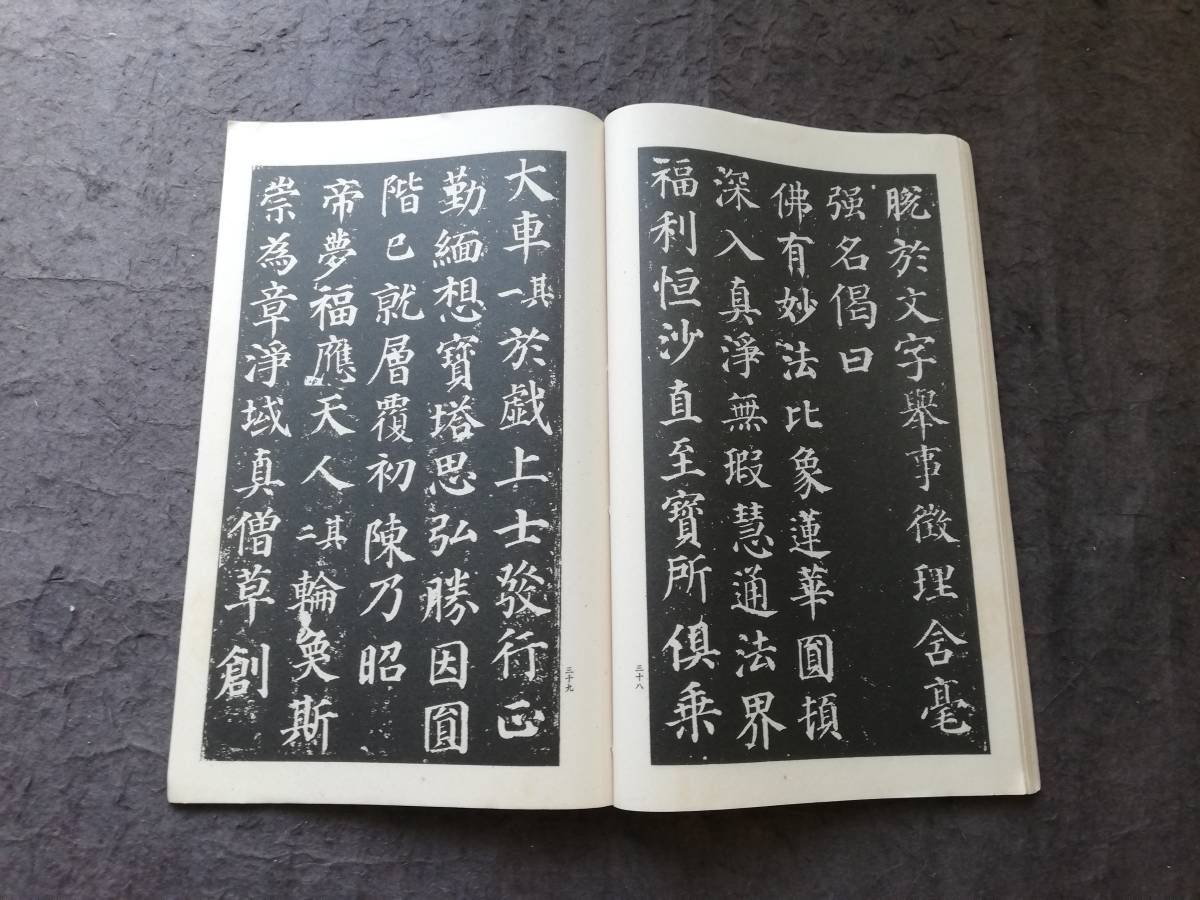 脫於文字舉事徵理含毫
强名偈曰
佛有妙法比象蓮華圓頓
深入真淨無瑕慧通法界
福利恒沙直至寶所俱乗
三十八
大車其一於戯上士發行正
勤緬想寶塔思弘勝因圓
階已就層覆初陳乃昭
帝夢福應天人其二輪奐斯
崇為章淨域真僧草創
三十九